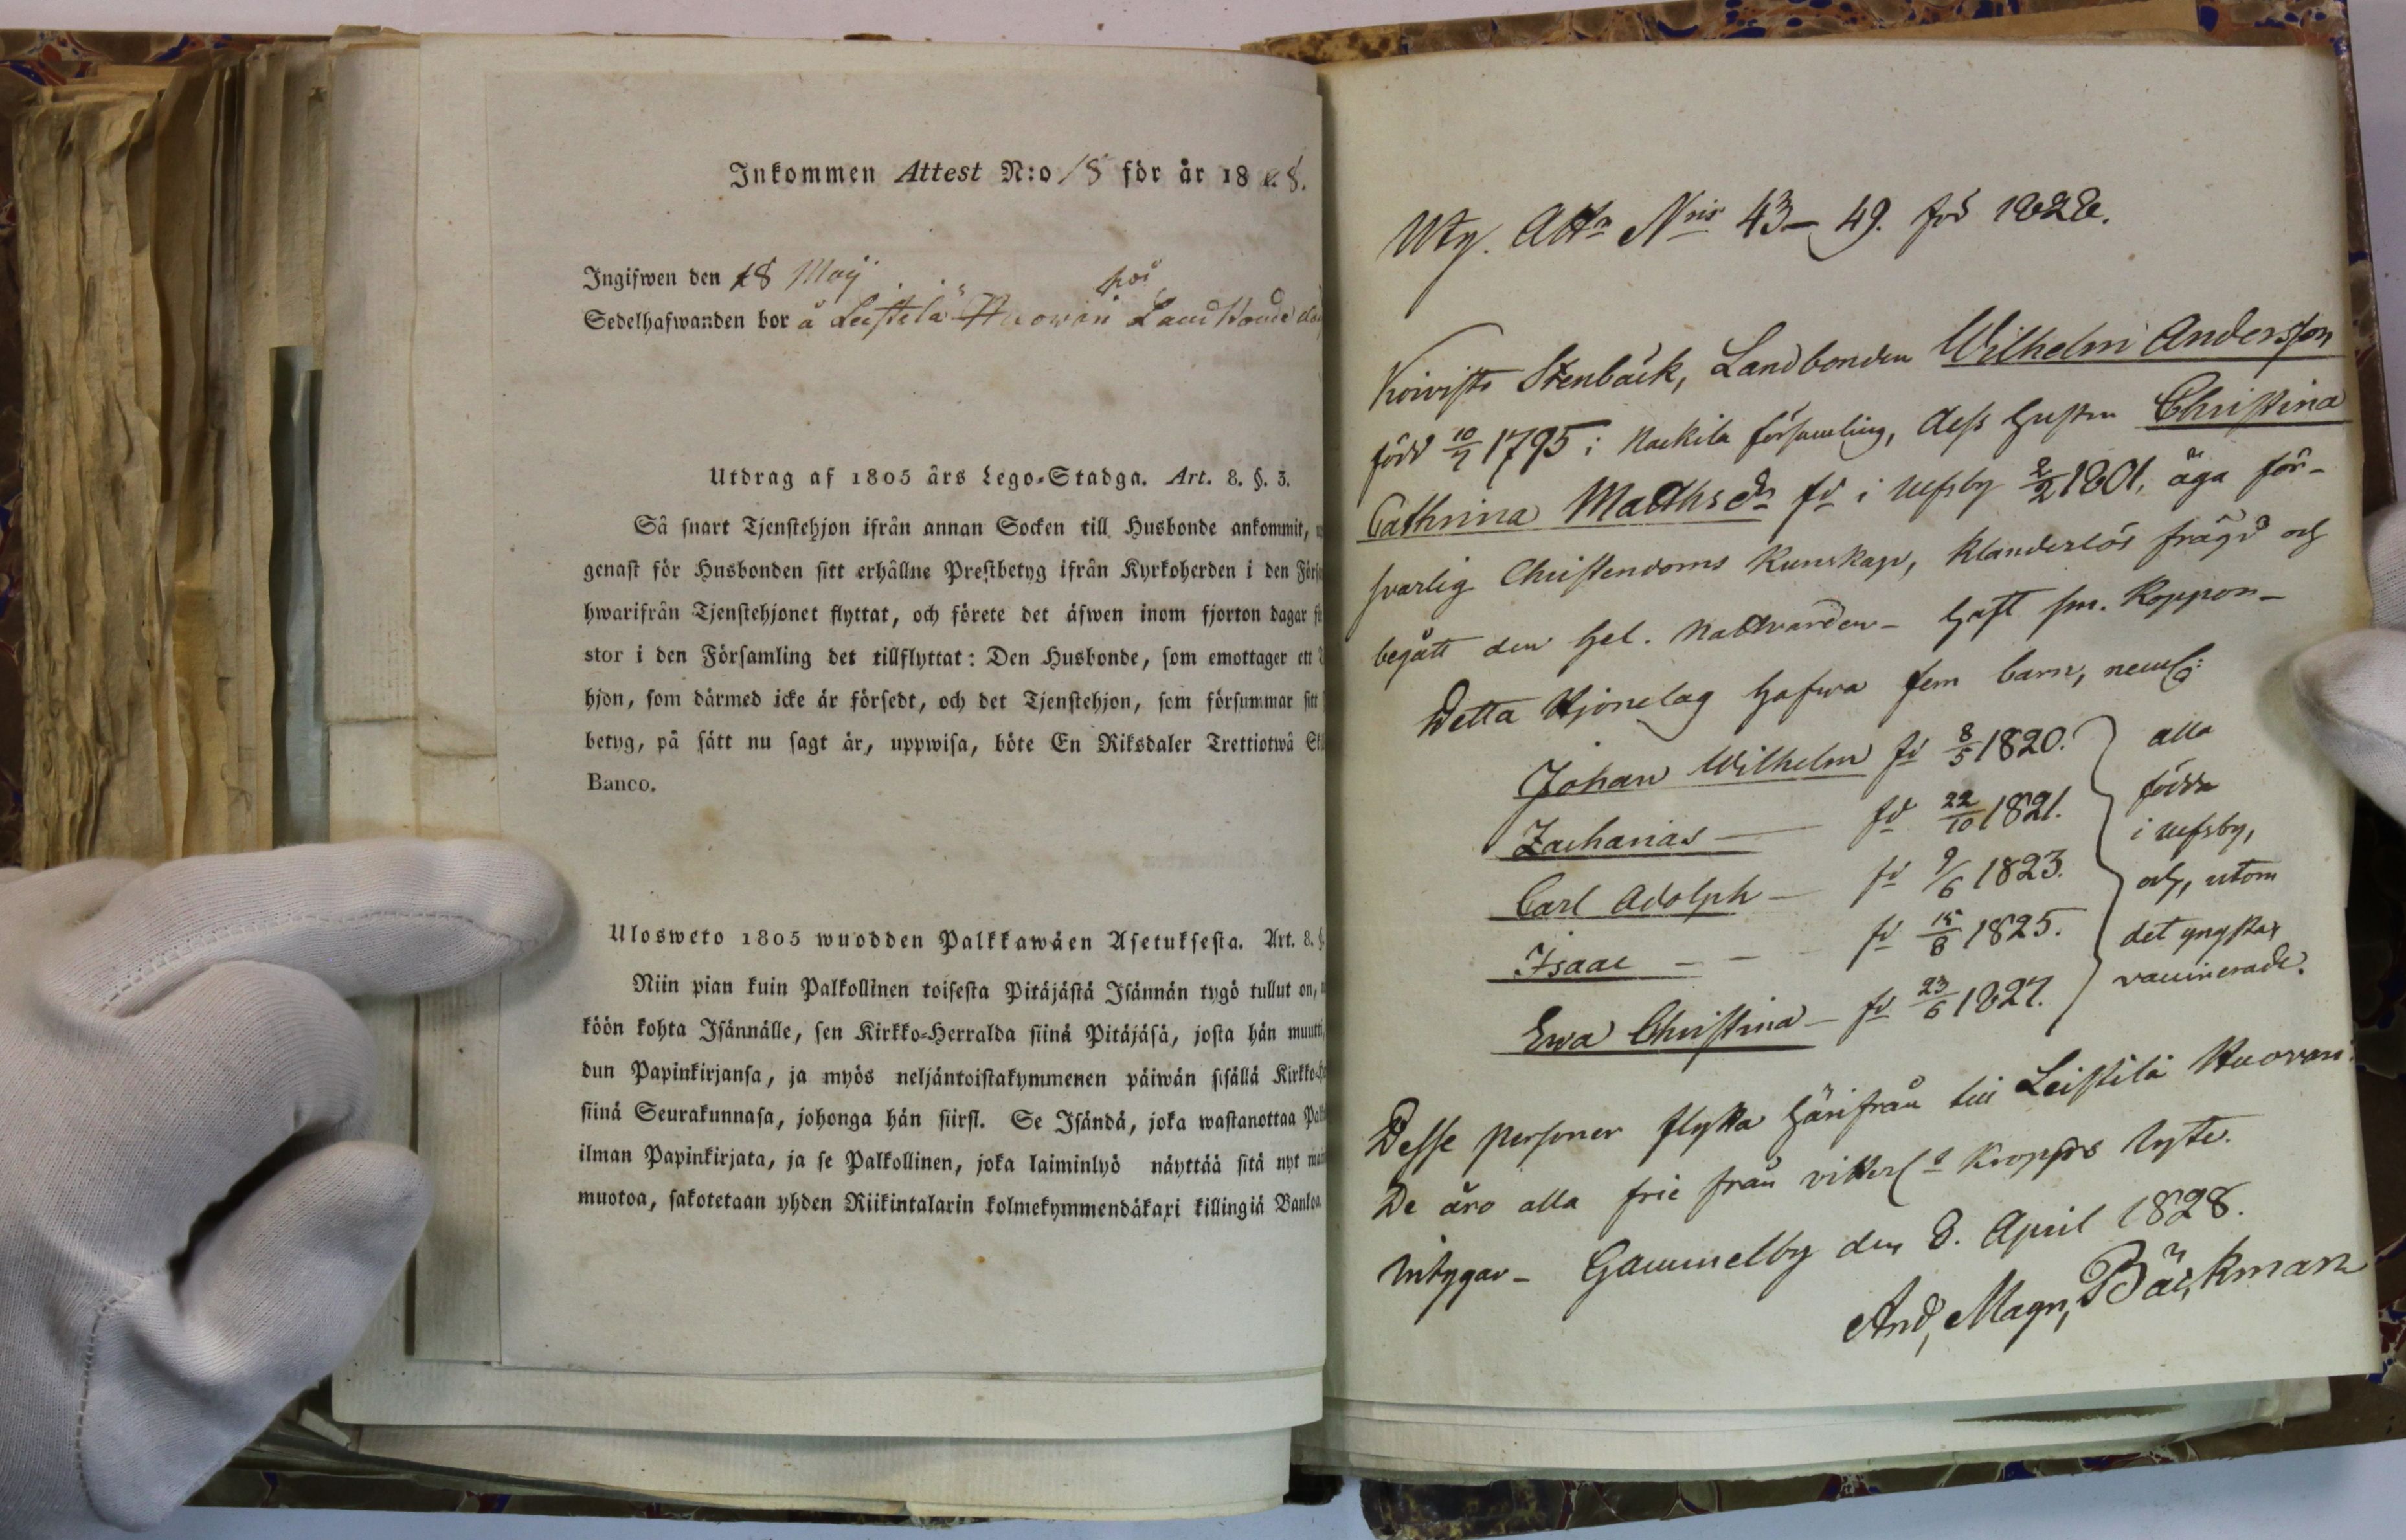 Inkommen Attest N:o 18 för år 1828.
Ingifwen den 18 Maij
hos
Sedelhafwanden bor å Leistilä Huovin Landbonde
Utdrag af 1805 års Lego-Stadga. Art. 8. §. 3.
Så snart Tjenstehjon ifrån annan Socken till Husbonde ankommit,
genast för Husbonden sitt erhållne Prestbetyg ifrån Kyrkoherden i den
hwarifrån Tjenstehjonet flyttat, och förete det äfwen inom fjorton dagar
stor i den Församling det tillflyttat: Den Husbonde, som emottager ett
hjon, som därmed icke är försedt, och det Tjenstehjon, som försummar sitt
betyg, på sätt nu sagt är, uppwisa, böte En Riksdaler Trettiotwå
Banco.
Ulosweto 1805 wuodden Palkkawäen Asetuksesta. Art. 8.
Niin pian kuin Palkollinen toisesta Pitäjästä Isännän tygö tullut on,
köön kohta Isännälle, sen Kirkko-Herralda siinä Pitäjäsä, josta hän
dun Papinkirjansa, ja myös neljäntoistakymmenen päiwän sisällä
siinä Seurakunnasa, johonga hän siirsi. Se Isändä, joka wastanottaa
ilman Papinkirjata, ja se Palkollinen, joka laiminlyö näyttää sitä nyt
muotoa, sakotetaan yhden Riikintalarin kolmekymmendäkaxi killingiä
Utg. Att. Nris 43–49. för 1828.
Koivisto Stenbäck, Landbonden Wilhelm Andersson
född 10/7 1795 i Nackila församling, dess Hustru Christina
Cathrina Mattsdr fd i Ulfsby 2/2 1801, äga för-
svarlig Christendoms Kunskap, klanderlös frägd och
begått den Hel. Nattvarden – haft sm. Koppon –
Detta Hjonelag hafva fem barn, neml:
Johan Wilhelm fd 8/5 1820.
Zacharias — fd 22/10 1821.
Carl Adolph – fd 9/6 1823.
Isaac – – fd 15/8 1825.
Ewa Christina – fd 23/6 1827.
alla
födda
i Ulfsby,
och, utom
det yngsta,
vaccinerade.
Desse personer flytta härifrån till Leistilä Huovari.
De äro alla frie från vitterl. Kropps lyte.
Intygar – Gammelby den 8. April 1828.
And, Magn, Bäckman